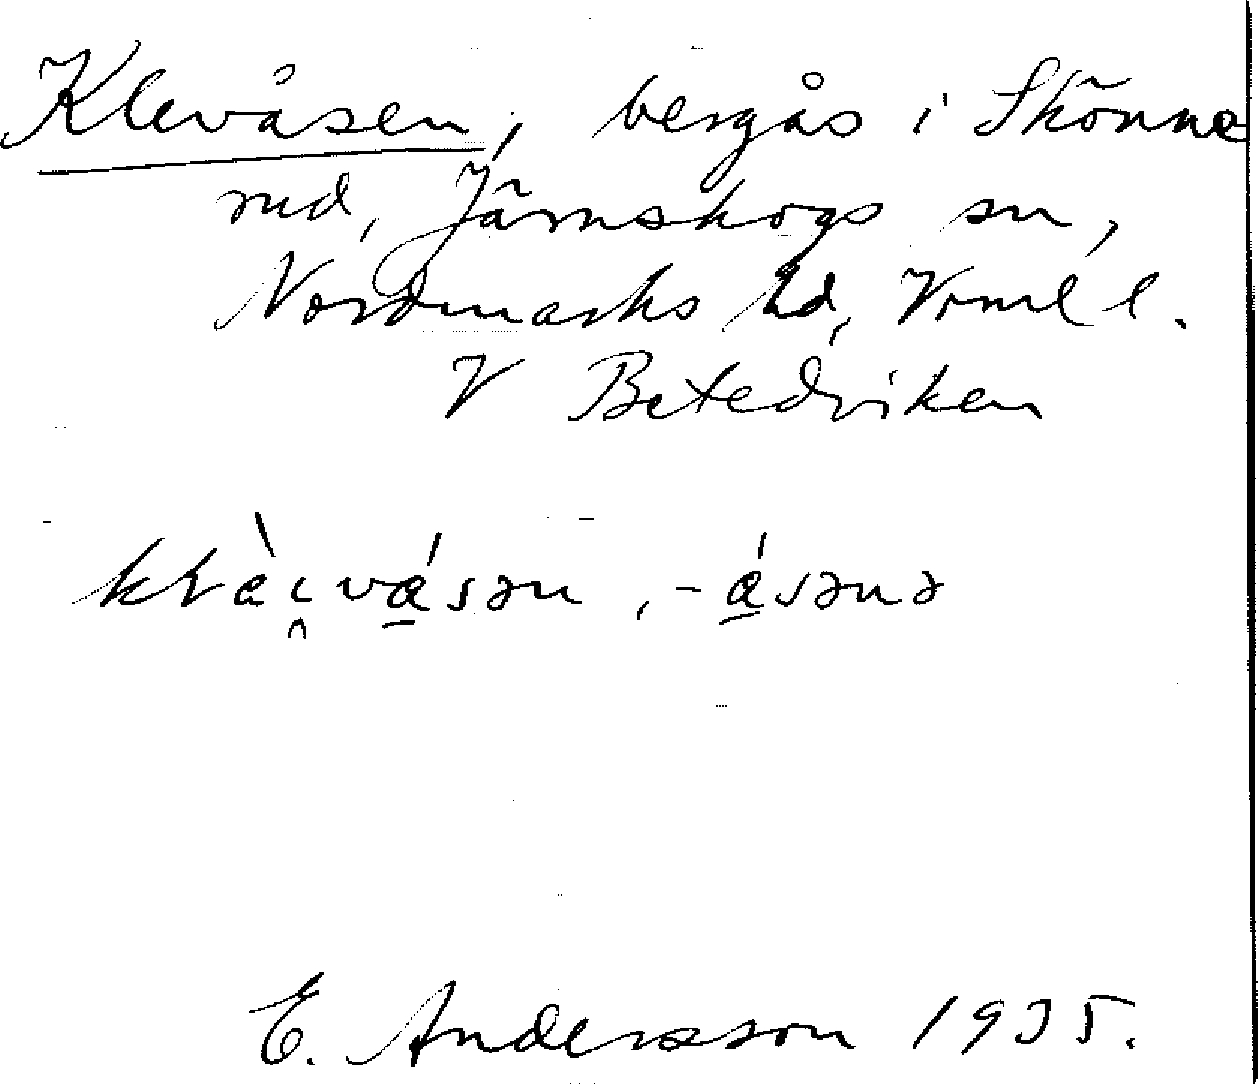 Klevåsen, bergås i Skönne
rud, Järnskogs sn,
Nordmarks hd, Vrml l.
V Betedviken
E. Andersson 1935.